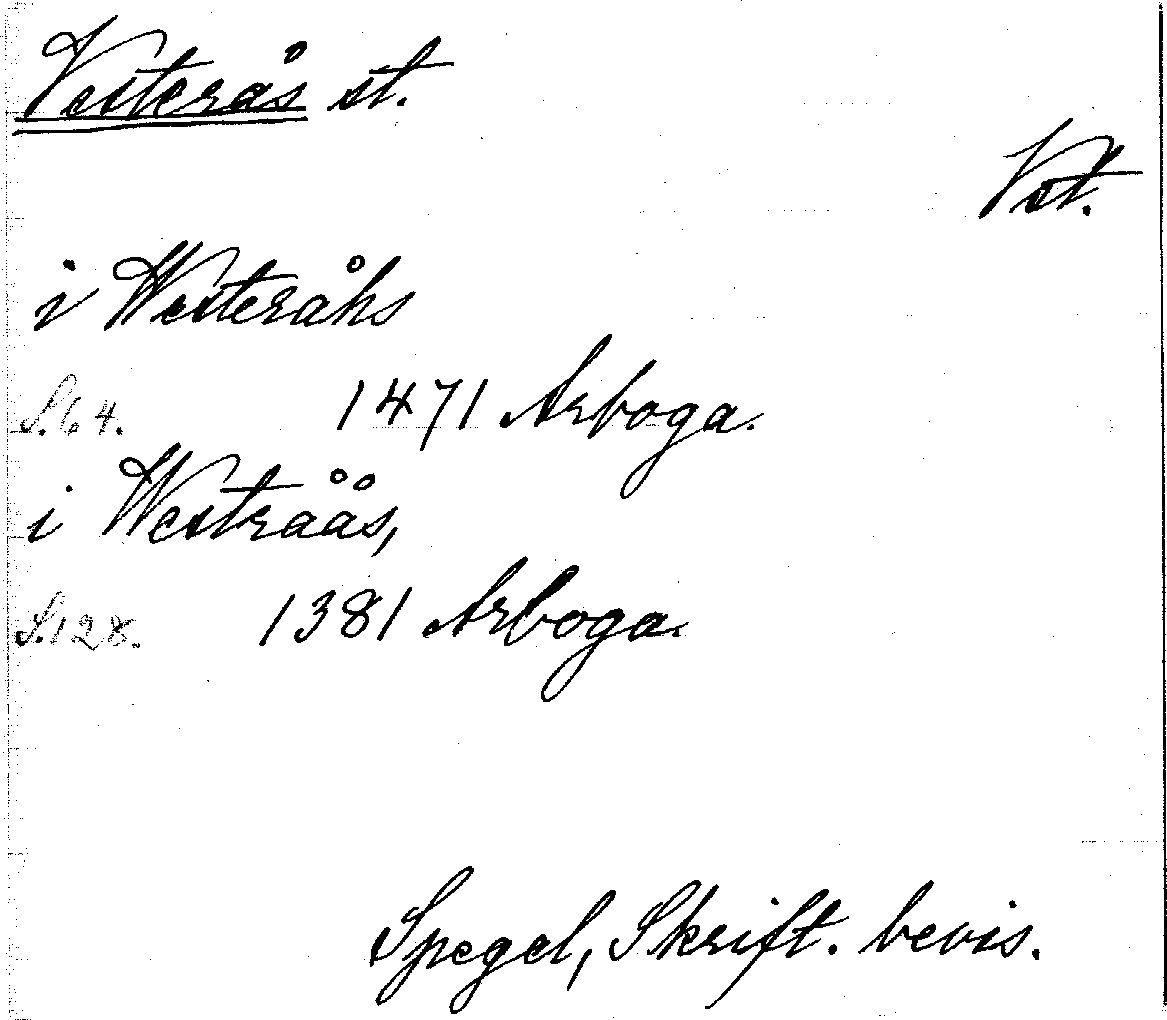 Vesterås st.
Vst.
i Westeråhs
S. 64. 1471 Arboga.
i Westråås,
S. 128. 1381 Arboga.
Spegel, Skrift. bevis.